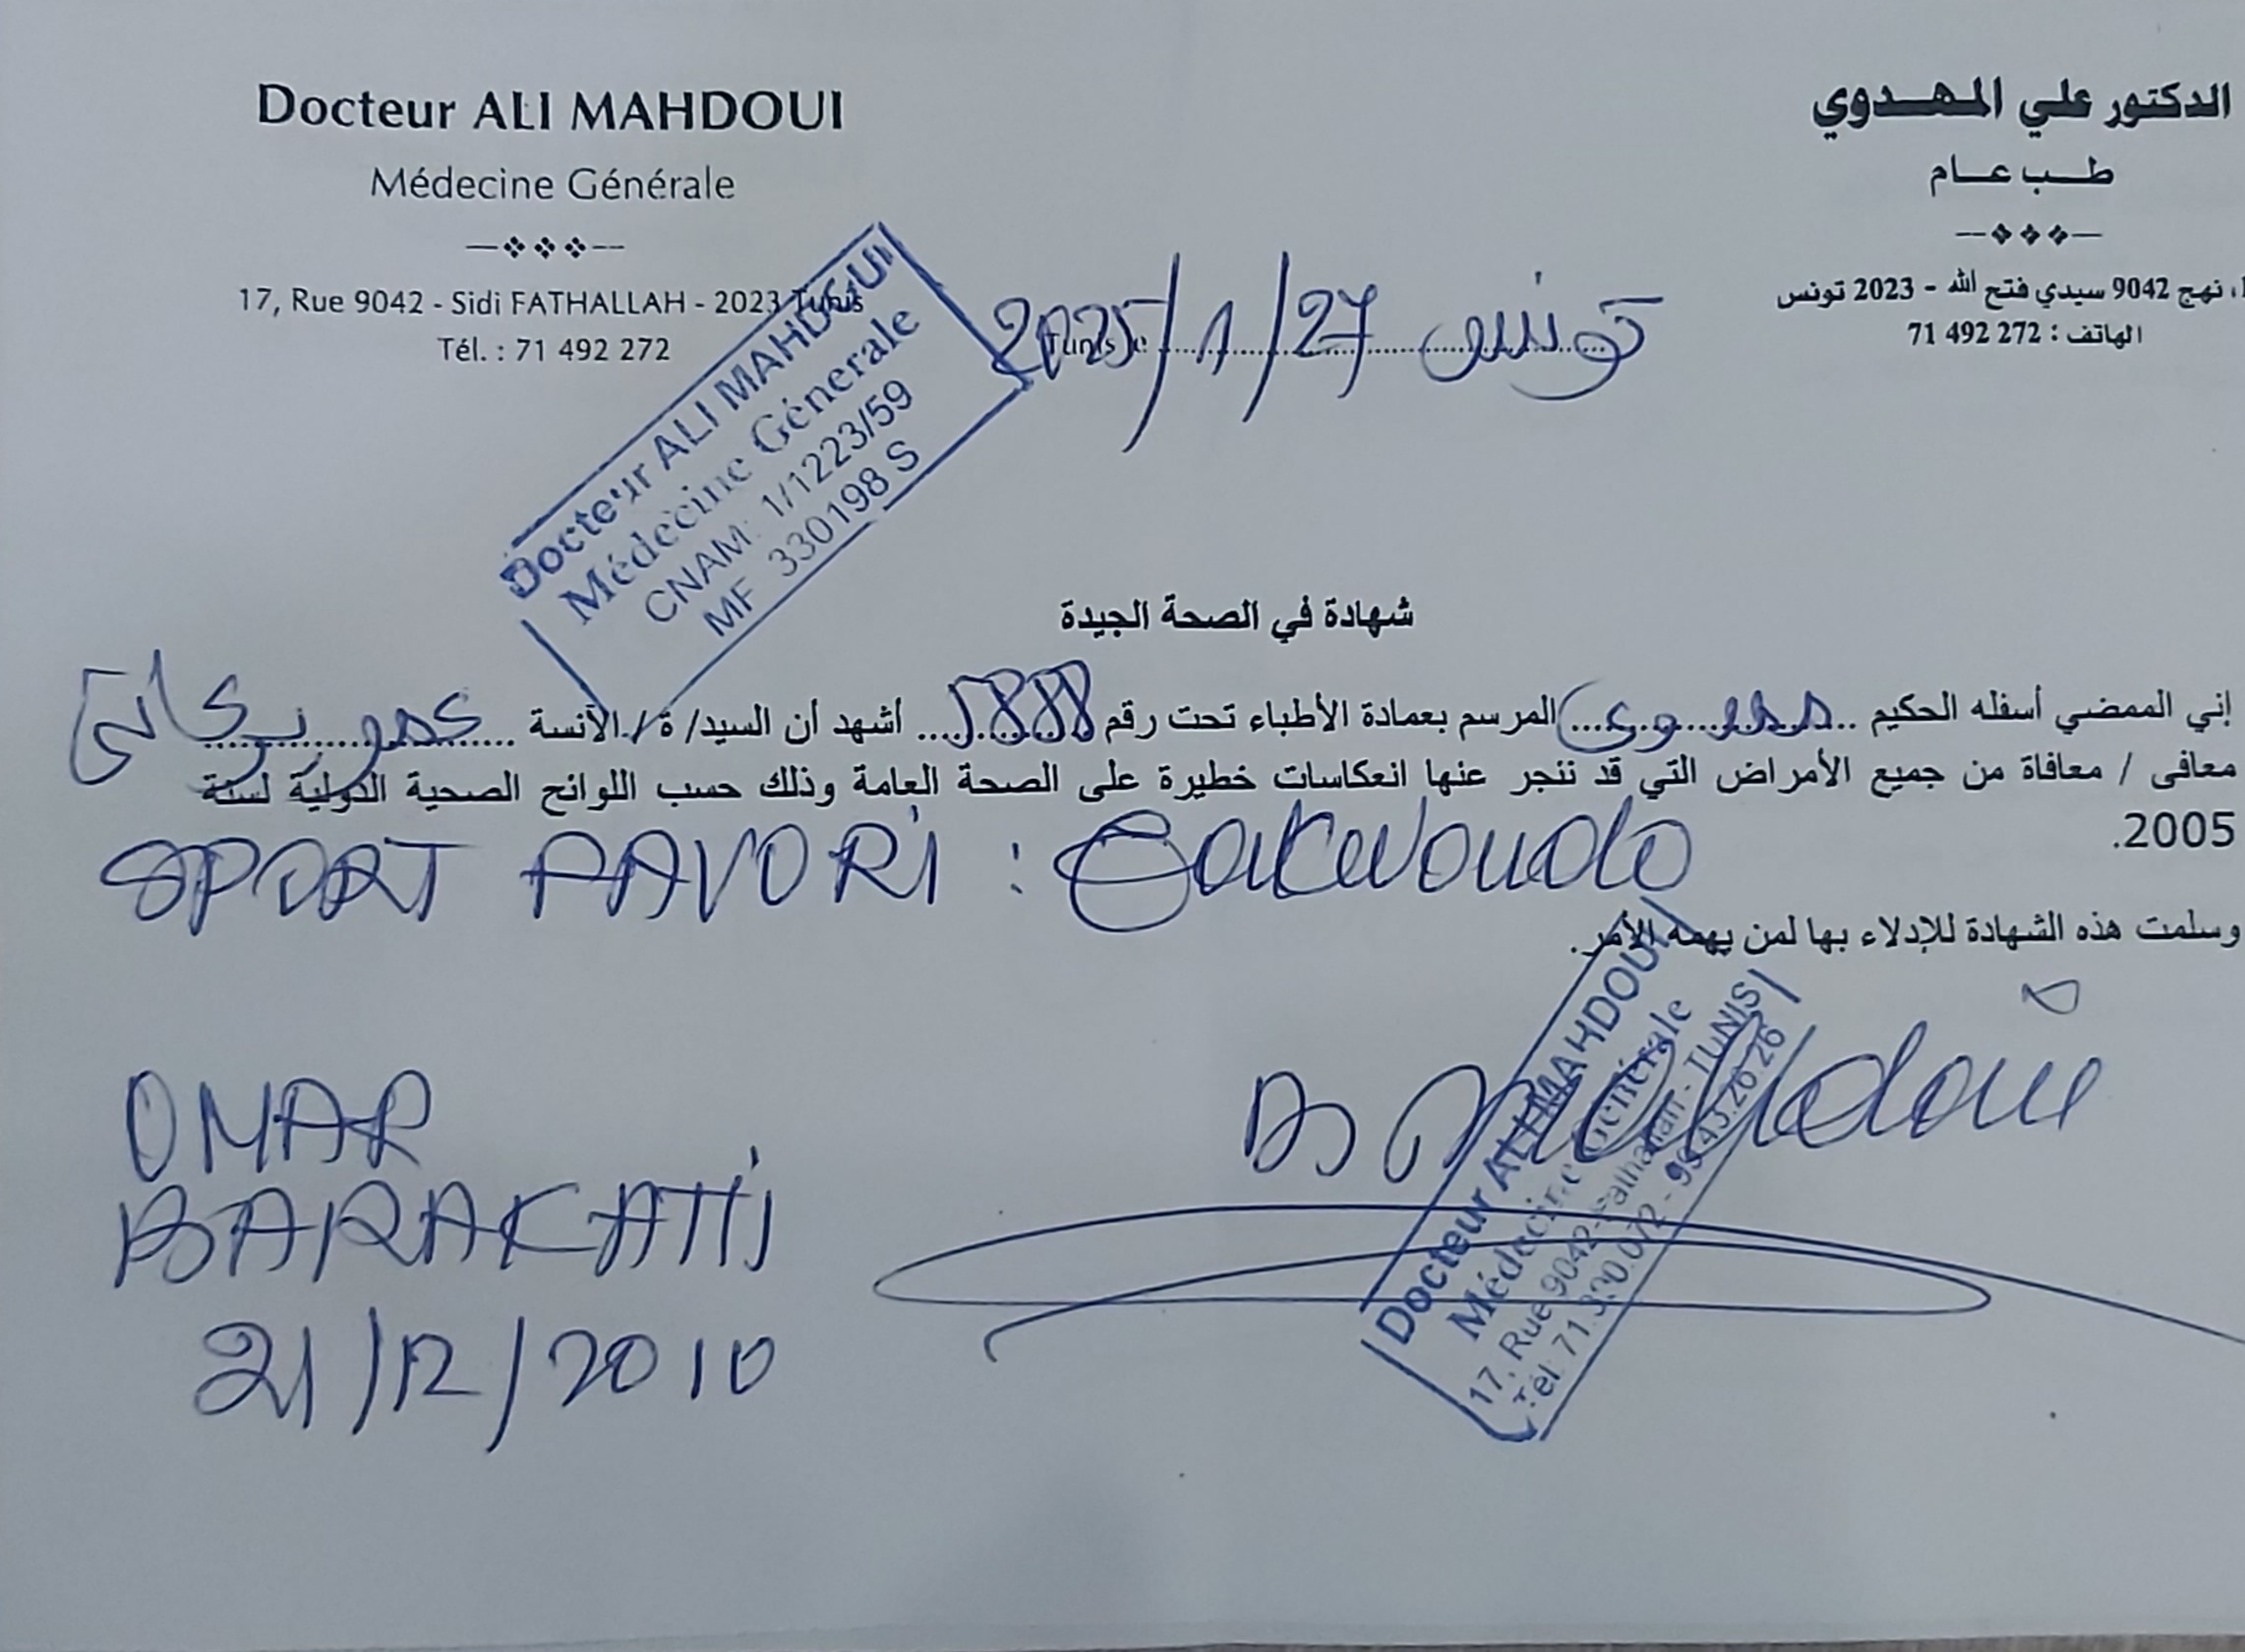 Docteur ALI MAHDOUI
Médecine Générale
17, Rue 9042 - Sidi FATHALLAH - 2023 Tunis
Tél. : 71 492 272
الدكتور علي المهدوي
طب عام
نهج 9042 سيدي فتح الله - 2023 تونس
الهاتف : 272 492 71
تونس 2025/1/27
Docteur ALI MAHDOUI
Médecine Génerale
CNAM: 1/1223/59
MF 330198 S
شهادة في الصحة الجيدة
إني الممضي أسفله الحكيم مهدوي المرسم بعمادة الأطباء تحت رقم 5888 أشهد أن السيد/ ة / الآنسة عمر بركاتي
معافى / معافاة من جميع الأمراض التي قد ننجر عنها انعكاسات خطيرة على الصحة العامة وذلك حسب اللوائح الصحية الدولية لسنة
2005.
SPORT FAVORi : Taekwondo
وسلمت هذه الشهادة للإدلاء بها لمن يهمه الأمر.
OMAR
BARAKATI
21/12/2010
Dr Mahdoui
Docteur ALI MAHDOUI
Médecine Générale
17, Rue 9042 - Fathallah - TUNIS
Tél: 71.